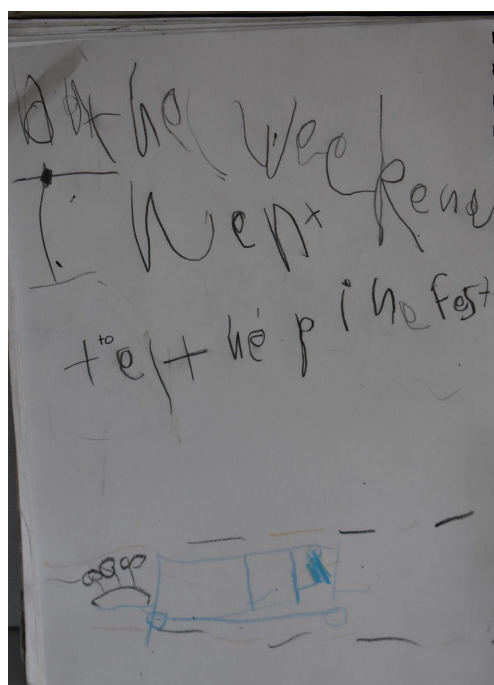 At the weekend
I Went
to the pine fest